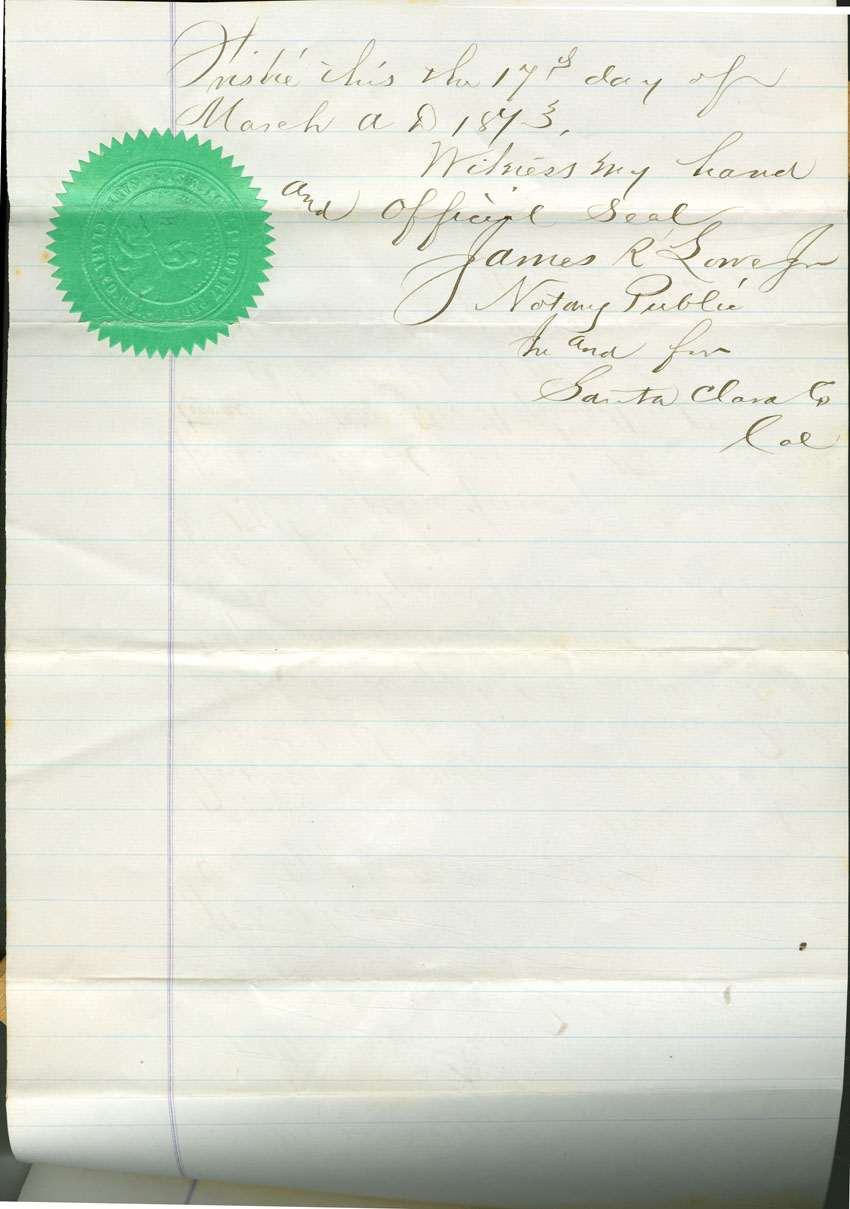 Friskie this the 17th day of
March A D 1873,
Witness my hand
and Official Seal
James R Lowe Jr
Notary Public
In and for
Santa Clara Co
Cal
NOTARY PUBLIC